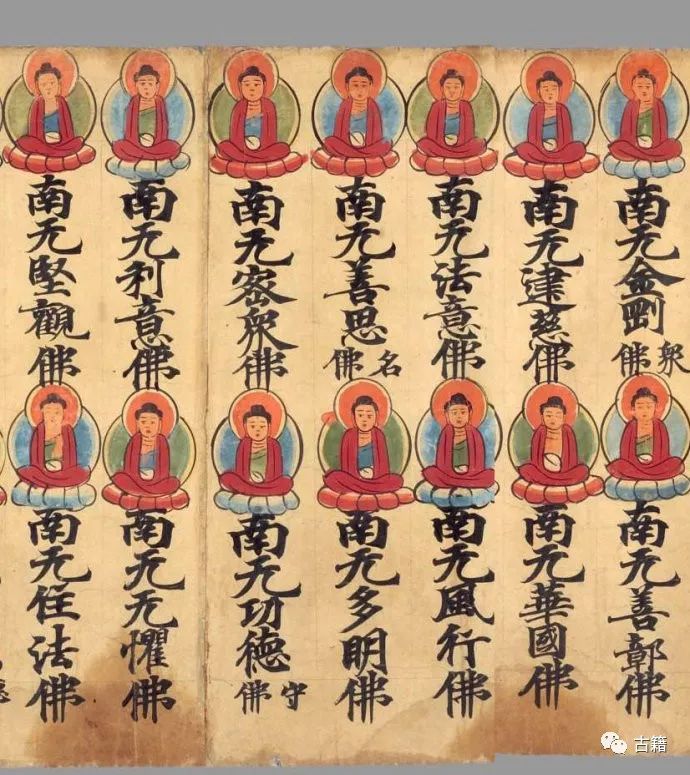 南无金剛衆佛
南无建慈佛
南无法意佛
南无善思名佛
南无密衆佛
南无利意佛
南无堅觀佛
南无善鄣佛
南无華國佛
南无風行佛
南无多明佛
南无功德守佛
南无无懼佛
南无住法佛
古籍